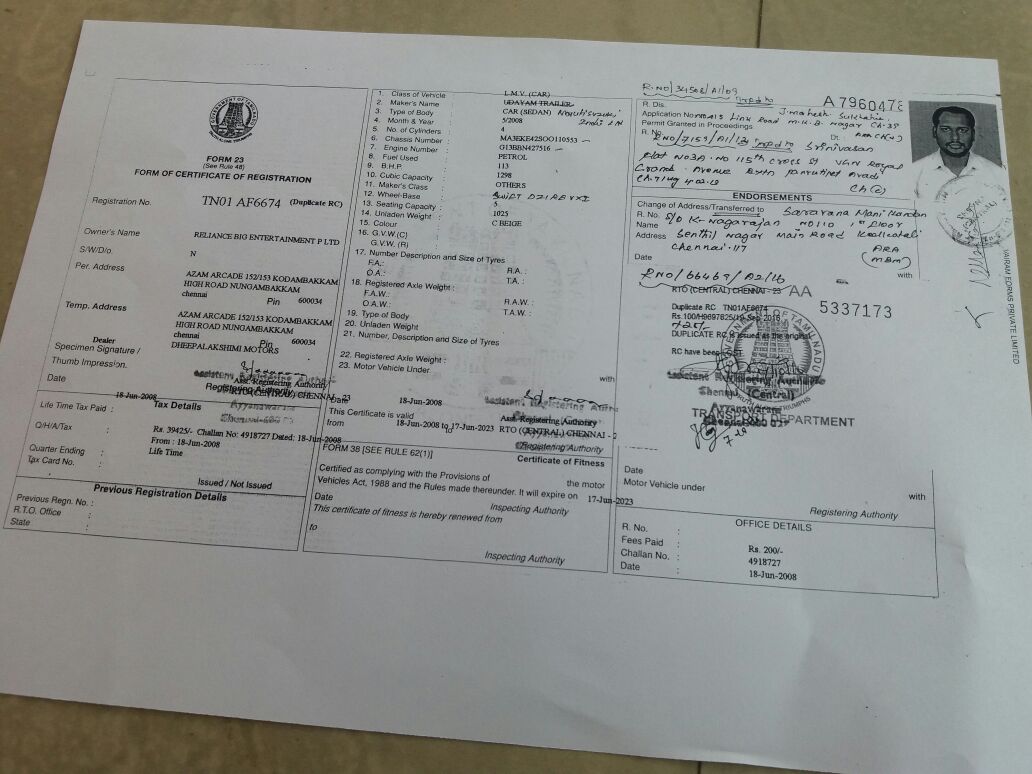 FORM 23
(See Rule 48)
FORM OF CERTIFICATE OF REGISTRATION
Registration No. TN01 AF6674 (Duplicate RC)
Owner's Name RELIANCE BIG ENTERTAINMENT P LTD
S/W/D/o. N
Per. Address AZAM ARCADE 152/153 KODAMBAKKAM
HIGH ROAD NUNGAMBAKKAM
chennai
Pin 600034
Temp. Address AZAM ARCADE 152/153 KODAMBAKKAM
HIGH ROAD NUNGAMBAKKAM
chennai
Pin 600034
Dealer DHEEPALAKSHIMI MOTORS
Specimen Signature /
Thumb Impression.
Asst. Registering Authority
Registering Authority
RTO (CENTRAL) CHENNAI - 23
Date 18-Jun-2008
Ayyanavaram
Tax Details
Life Time Tax Paid :
Q/H/A/Tax : Rs. 39425/- Challan No: 4918727 Dated: 18-Jun-2008
From : 18-Jun-2008
Quarter Ending : Life Time
Tax Card No. :
Issued / Not Issued
Previous Registration Details
Previous Regn. No. :
R.T.O. Office :
State :
1. Class of Vehicle : L.M.V. (CAR)
2. Maker's Name : UDAYAM TRAILER
3. Type of Body : CAR (SEDAN)
4. Month & Year : 5/2008
5. No. of Cylinders : 4
6. Chassis Number : MA3EKE42SOO110553
7. Engine Number : G13BBN427516
8. Fuel Used : PETROL
9. B.H.P. : 113
10. Cubic Capacity : 1298
11. Maker's Class : OTHERS
12. Wheel-Base : Swift DZIRE VXI
13. Seating Capacity : 5
14. Unladen Weight : 1025
15. Colour : C BEIGE
16. G.V.W.(C) :
G.V.W. (R) :
17. Number Description and Size of Tyres
F.A.: R.A. :
O.A.: T.A. :
18. Registered Axle Weight :
F.A.W. : R.A.W. :
O.A.W. : T.A.W. :
19. Type of Body :
20. Unladen Weight :
21. Number, Description and Size of Tyres
22. Registered Axle Weight :
23. Motor Vehicle Under.
with
Date 18-Jun-2008
Assistant Registering
This Certificate is valid
from 18-Jun-2008 to 17-Jun-2023
Asst. Registering Authority
RTO (CENTRAL) CHENNAI -
Registering Authority
FORM 38 [SEE RULE 62(1)]
Certificate of Fitness
Certified as complying with the Provisions of the motor
Vehicles Act, 1988 and the Rules made thereunder. It will expire on 17-Jun-2023
Date Inspecting Authority
This certificate of fitness is hereby renewed from
to
Inspecting Authority
R.NO/34508/A1/09
A 7960478
R. Dis.
Application No
Link Road M.K.B. Nagar Ch-39
Permit Granted in Proceedings
R. No. Dt.
Srinivasan
Flat No3A. No 115th Cross St VGN Royal
Grand Avenue
ENDORSEMENTS
Change of Address/Transferred to Saravana Mani
R. No. S/O K. Nagarajan No 110 1st floor
Name
Address Senthil Nagar Main Road
Chennai. 117
Date
with
RNO/66469/A2/16
RTO (CENTRAL) CHENNAI - 23
AA 5337173
Duplicate RC TN01AF6674
DUPLICATE RC is issued as the original
RC have been LOST
Assistant Registering Authority
Chennai (Central)
Ayyanavaram
TRANSPORT DEPARTMENT
GOVERNMENT OF TAMILNADU
TRUTH ALONE TRIUMPHS
Date
Motor Vehicle under
with
Registering Authority
OFFICE DETAILS
R. No. :
Fees Paid : Rs. 200/-
Challan No. : 4918727
Date : 18-Jun-2008
VAIRAM FORMS PRIVATE LIMITED